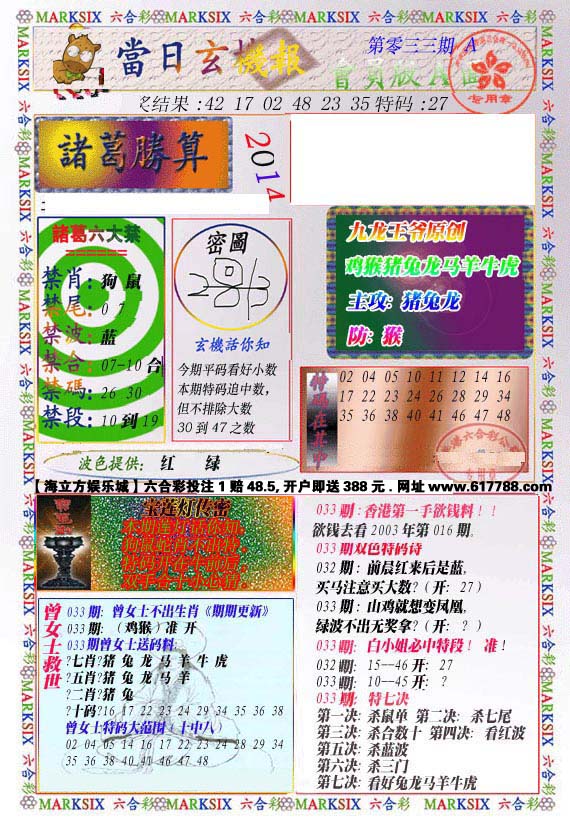 MARKSIX 六合彩 MARKSIX 六合彩 MARKSIX 六合彩 MARKSIX 六合彩
當日玄機報
第零三三期 A
會員版A面
专用章
奖结果:42 17 02 48 23 35特码:27
諸葛勝算
2014
諸葛六大禁
禁肖: 狗 鼠
禁尾: 0 7
禁波: 蓝
禁合: 07-10 合
禁碼: 26 30
禁段: 10 到 19
密圖
玄機活你知
今期平码看好小数
本期特码追中数,
但不排除大数
30 到 47 之数
九龙王爷原创
鸡猴猪兔龙马羊牛虎
主攻: 猪兔龙
防: 猴
02 04 05 10 11 12 14 16
17 22 23 24 26 28 29 34
35 36 38 40 41 46 47 48
波色提供: 红 绿
【海立方娱乐城】六合彩投注 1 赔 48.5, 开户即送 388 元 . 网址 www.617788.com
宝莲灯传密
曾女士救世
033 期: 曾女士不出生肖《期期更新》
033 期: (鸡猴) 准 开
033期曾女士送码料:
?七肖?猪 兔 龙 马 羊 牛 虎
?五肖?猪 兔 龙 马 羊
?二肖?猪 兔
?十码?16 17 22 23 24 29 34 35 36 38
曾女士特码大范围 (十中八)
02 04 05 14 16 17 22 23 24 28 29 34
35 36 38 40 41 46 47 48
033 期 : 香港第一手欲钱料 ! !
欲钱去看 2003 年第 016 期。
033 期双色特码诗
032 期: 前晨红来后是蓝,
买马注意买大数? (开: 27)
033 期: 山鸡就想变凤凰,
绿波不出无奖拿? (开: ? )
033 期: 白小姐必中特段! 准!
032 期: 15--46 开: 27
033 期: 10--45 开: ?
033 期: 特七决
第一决: 杀鼠单 第二决: 杀七尾
第三决: 杀合数十 第四决: 看红波
第五决: 杀蓝波
第六决: 杀三门
第七决: 看好兔龙马羊牛虎
MARKSIX 六合彩 MARKSIX 六合彩 MARKSIX 六合彩 MARKSIX 六合彩